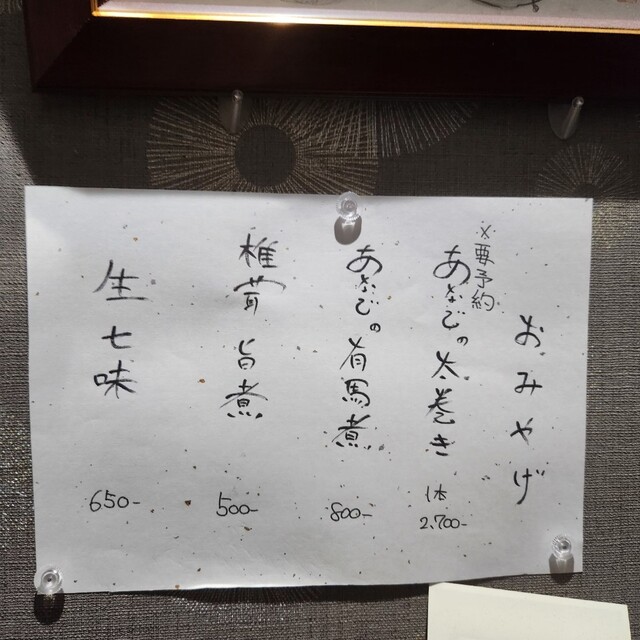 おみやげ
※要予約
あなごの太巻き
1本
2,700-
あなごの有馬煮
800-
椎茸旨煮
500-
生七味
650-